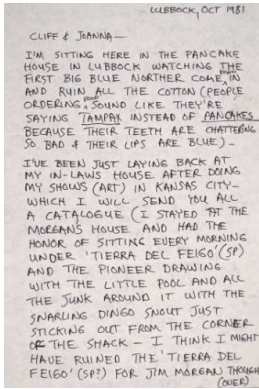 LUBBOCK, OCT 1981
CLIFF & JOANNA—
I'M SITTING HERE IN THE PANCAKE
HOUSE IN LUBBOCK WATCHING THE
FIRST BIG BLUE NORTHER COME IN
AND RUIN ALL THE COTTON (PEOPLE
ORDERING SOUND LIKE THEY'RE
SAYING TAMPAX INSTEAD OF PANCAKES
BECAUSE THEIR TEETH ARE CHATTERING
SO BAD & THEIR LIPS ARE BLUE)—
I'VE BEEN JUST LAYING BACK AT
MY IN-LAWS HOUSE AFTER DOING
MY SHOWS (ART) IN KANSAS CITY—
WHICH I WILL SEND YOU ALL
A CATALOGUE (I STAYED AT THE
MORGANS HOUSE AND HAD THE
HONOR OF SITTING EVERY MORNING
UNDER 'TIERRA DEL FEIGO' (SP)
AND THE PIONEER DRAWING
WITH THE LITTLE POOL AND ALL
THE JUNK AROUND IT WITH THE
SNARLING DINGO SNOUT JUST
STICKING OUT FROM THE CORNER
OF THE SHACK — I THINK I MIGHT
HAVE RUINED THE 'TIERRA DEL
FEIGO' (SP?) FOR JIM MORGAN THOUGH
(OVER)